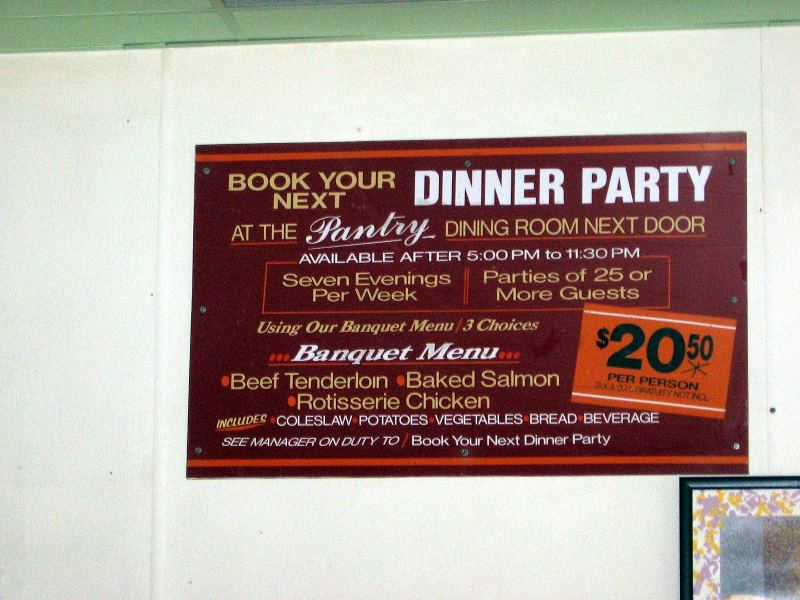 BOOK YOUR NEXT DINNER PARTY
AT THE Pantry DINING ROOM NEXT DOOR
AVAILABLE AFTER 5:00 PM to 11:30 PM
Seven Evenings Per Week
Parties of 25 or More Guests
Using Our Banquet Menu / 3 Choices
$20.50*
PER PERSON
TAX & 20% GRATUITY NOT INCL.
•••Banquet Menu•••
•Beef Tenderloin •Baked Salmon
•Rotisserie Chicken
INCLUDES •COLESLAW •POTATOES •VEGETABLES •BREAD •BEVERAGE
SEE MANAGER ON DUTY TO / Book Your Next Dinner Party